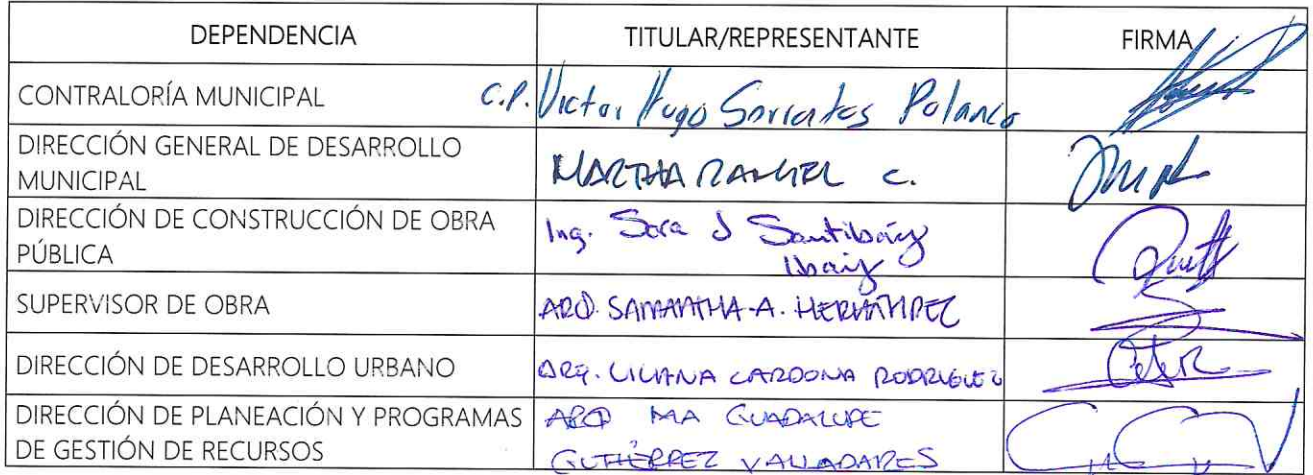 DEPENDENCIA TITULAR/REPRESENTANTE FIRMA
CONTRALORÍA MUNICIPAL C.P. Victor Hugo Polanco
DIRECCIÓN GENERAL DE DESARROLLO
MUNICIPAL MARTHA RANGEL C.
DIRECCIÓN DE CONSTRUCCIÓN DE OBRA
PÚBLICA Ing. Sara J Santibáñez
Ibañez
SUPERVISOR DE OBRA ARQ. SAMANTHA A. HERNÁNDEZ
DIRECCIÓN DE DESARROLLO URBANO ARQ. LILIANA CARDONA RODRIGUEZ
DIRECCIÓN DE PLANEACIÓN Y PROGRAMAS
DE GESTIÓN DE RECURSOS ARQ MA GUADALUPE
GUTIÉRREZ VALLADARES